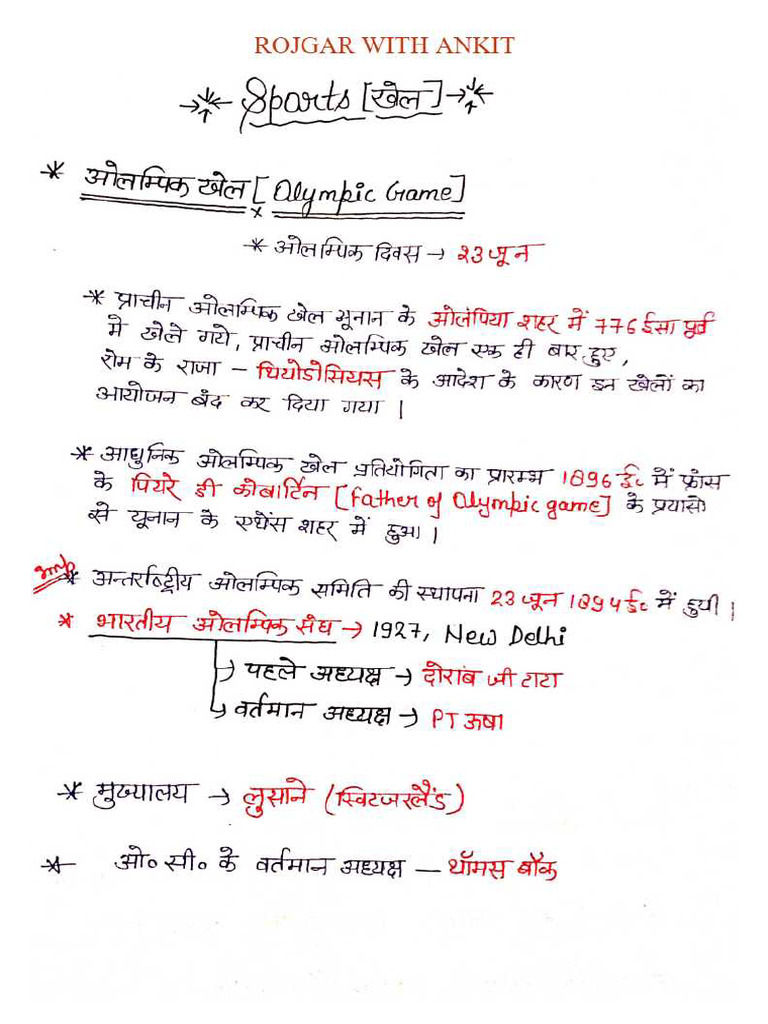 ROJGAR WITH ANKIT
Sports [खेल]
* ओलम्पिक खेल [Olympic Game]
* ओलम्पिक दिवस → 23 जून
* प्राचीन ओलम्पिक खेल यूनान के ओलंपिया शहर में 776 ईसा पूर्व
में खेले गये, प्राचीन ओलम्पिक खेल एक ही बार हुए,
रोम के राजा - थियोडोसियस के आदेश के कारण इन खेलों का
आयोजन बंद कर दिया गया।
* आधुनिक ओलम्पिक खेल प्रतियोगिता का प्रारम्भ 1896 ई० में फ्रांस
के पियरे डी कोबार्टिन [Father of Olympic game] के प्रयासो
से यूनान के एथेंस शहर में हुआ।
Imp * अन्तर्राष्ट्रीय ओलम्पिक समिति की स्थापना 23 जून 1894 ई० में हुयी।
* भारतीय ओलम्पिक संघ → 1927, New Delhi
→ पहले अध्यक्ष → दोराब जी टाटा
→ वर्तमान अध्यक्ष → PT ऊषा
* मुख्यालय → लुसाने (स्विटजरलैंड)
* ओ० सी० के वर्तमान अध्यक्ष — थॉमस बॉक